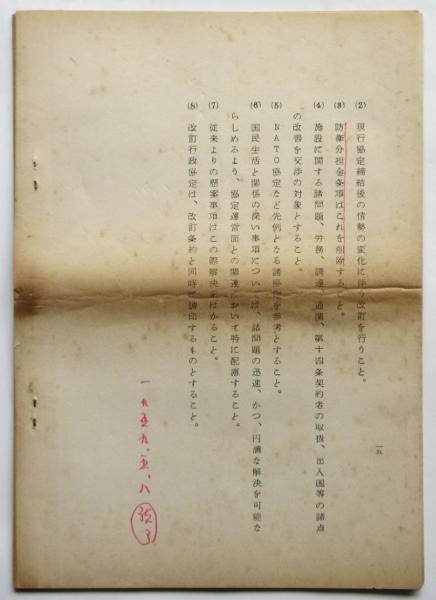 (2) 現行協定締結後の情勢の変化に伴う改訂を行うこと。
(3) 防衛分担金条項はこれを削除すること。
(4) 施設に関する諸問題、労務、調達、通関、第十四条契約者の取扱、出入国等の諸点
の改善を交渉の対象とすること。
(5) NATO協定など先例となる諸協定を参考とすること。
(6) 国民生活と関係の深い事項については、諸問題の迅速、かつ、円満な解決を可能な
らしめるよう、協定運営面との関連において特に配慮すること。
(7) 従来よりの懸案事項はこの際解決をはかること。
(8) 改訂行政協定は、改訂条約と同時に調印するものとすること。
一九
一九五九、五、八
了